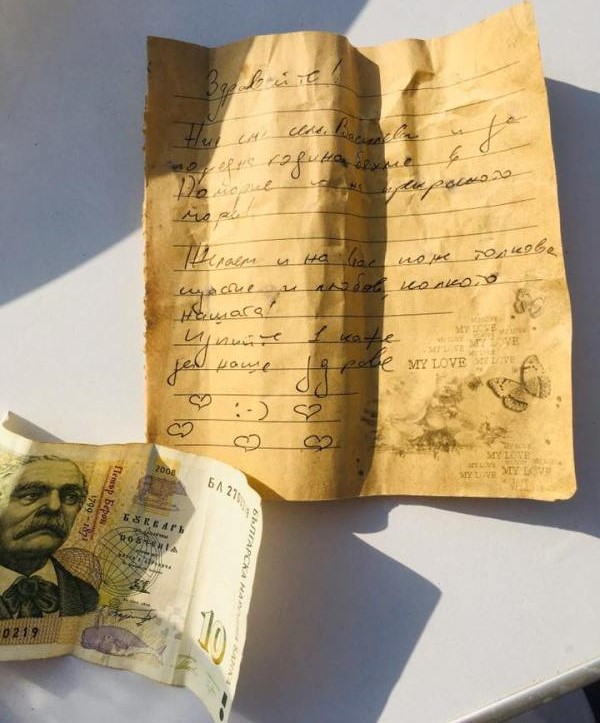 Здравейте!
Ние сме сем. Василеви и за
поредна година бяхме в
Поморие на прекрасното
море!
Желаем и на Вас поне толкова
щастие и любов, колкото
нашата!
Изпийте 1 кафе
за наше здраве
:-)
MY LOVE
MY LOVE
MY LOVE
MY LOVE
MY LOVE
MY LOVE
MY LOVE
2008
Петър Берон
БЛ
БУКВАРЬ
БЪЛГАРСКА НАРОДНА БАНКА
10
0219